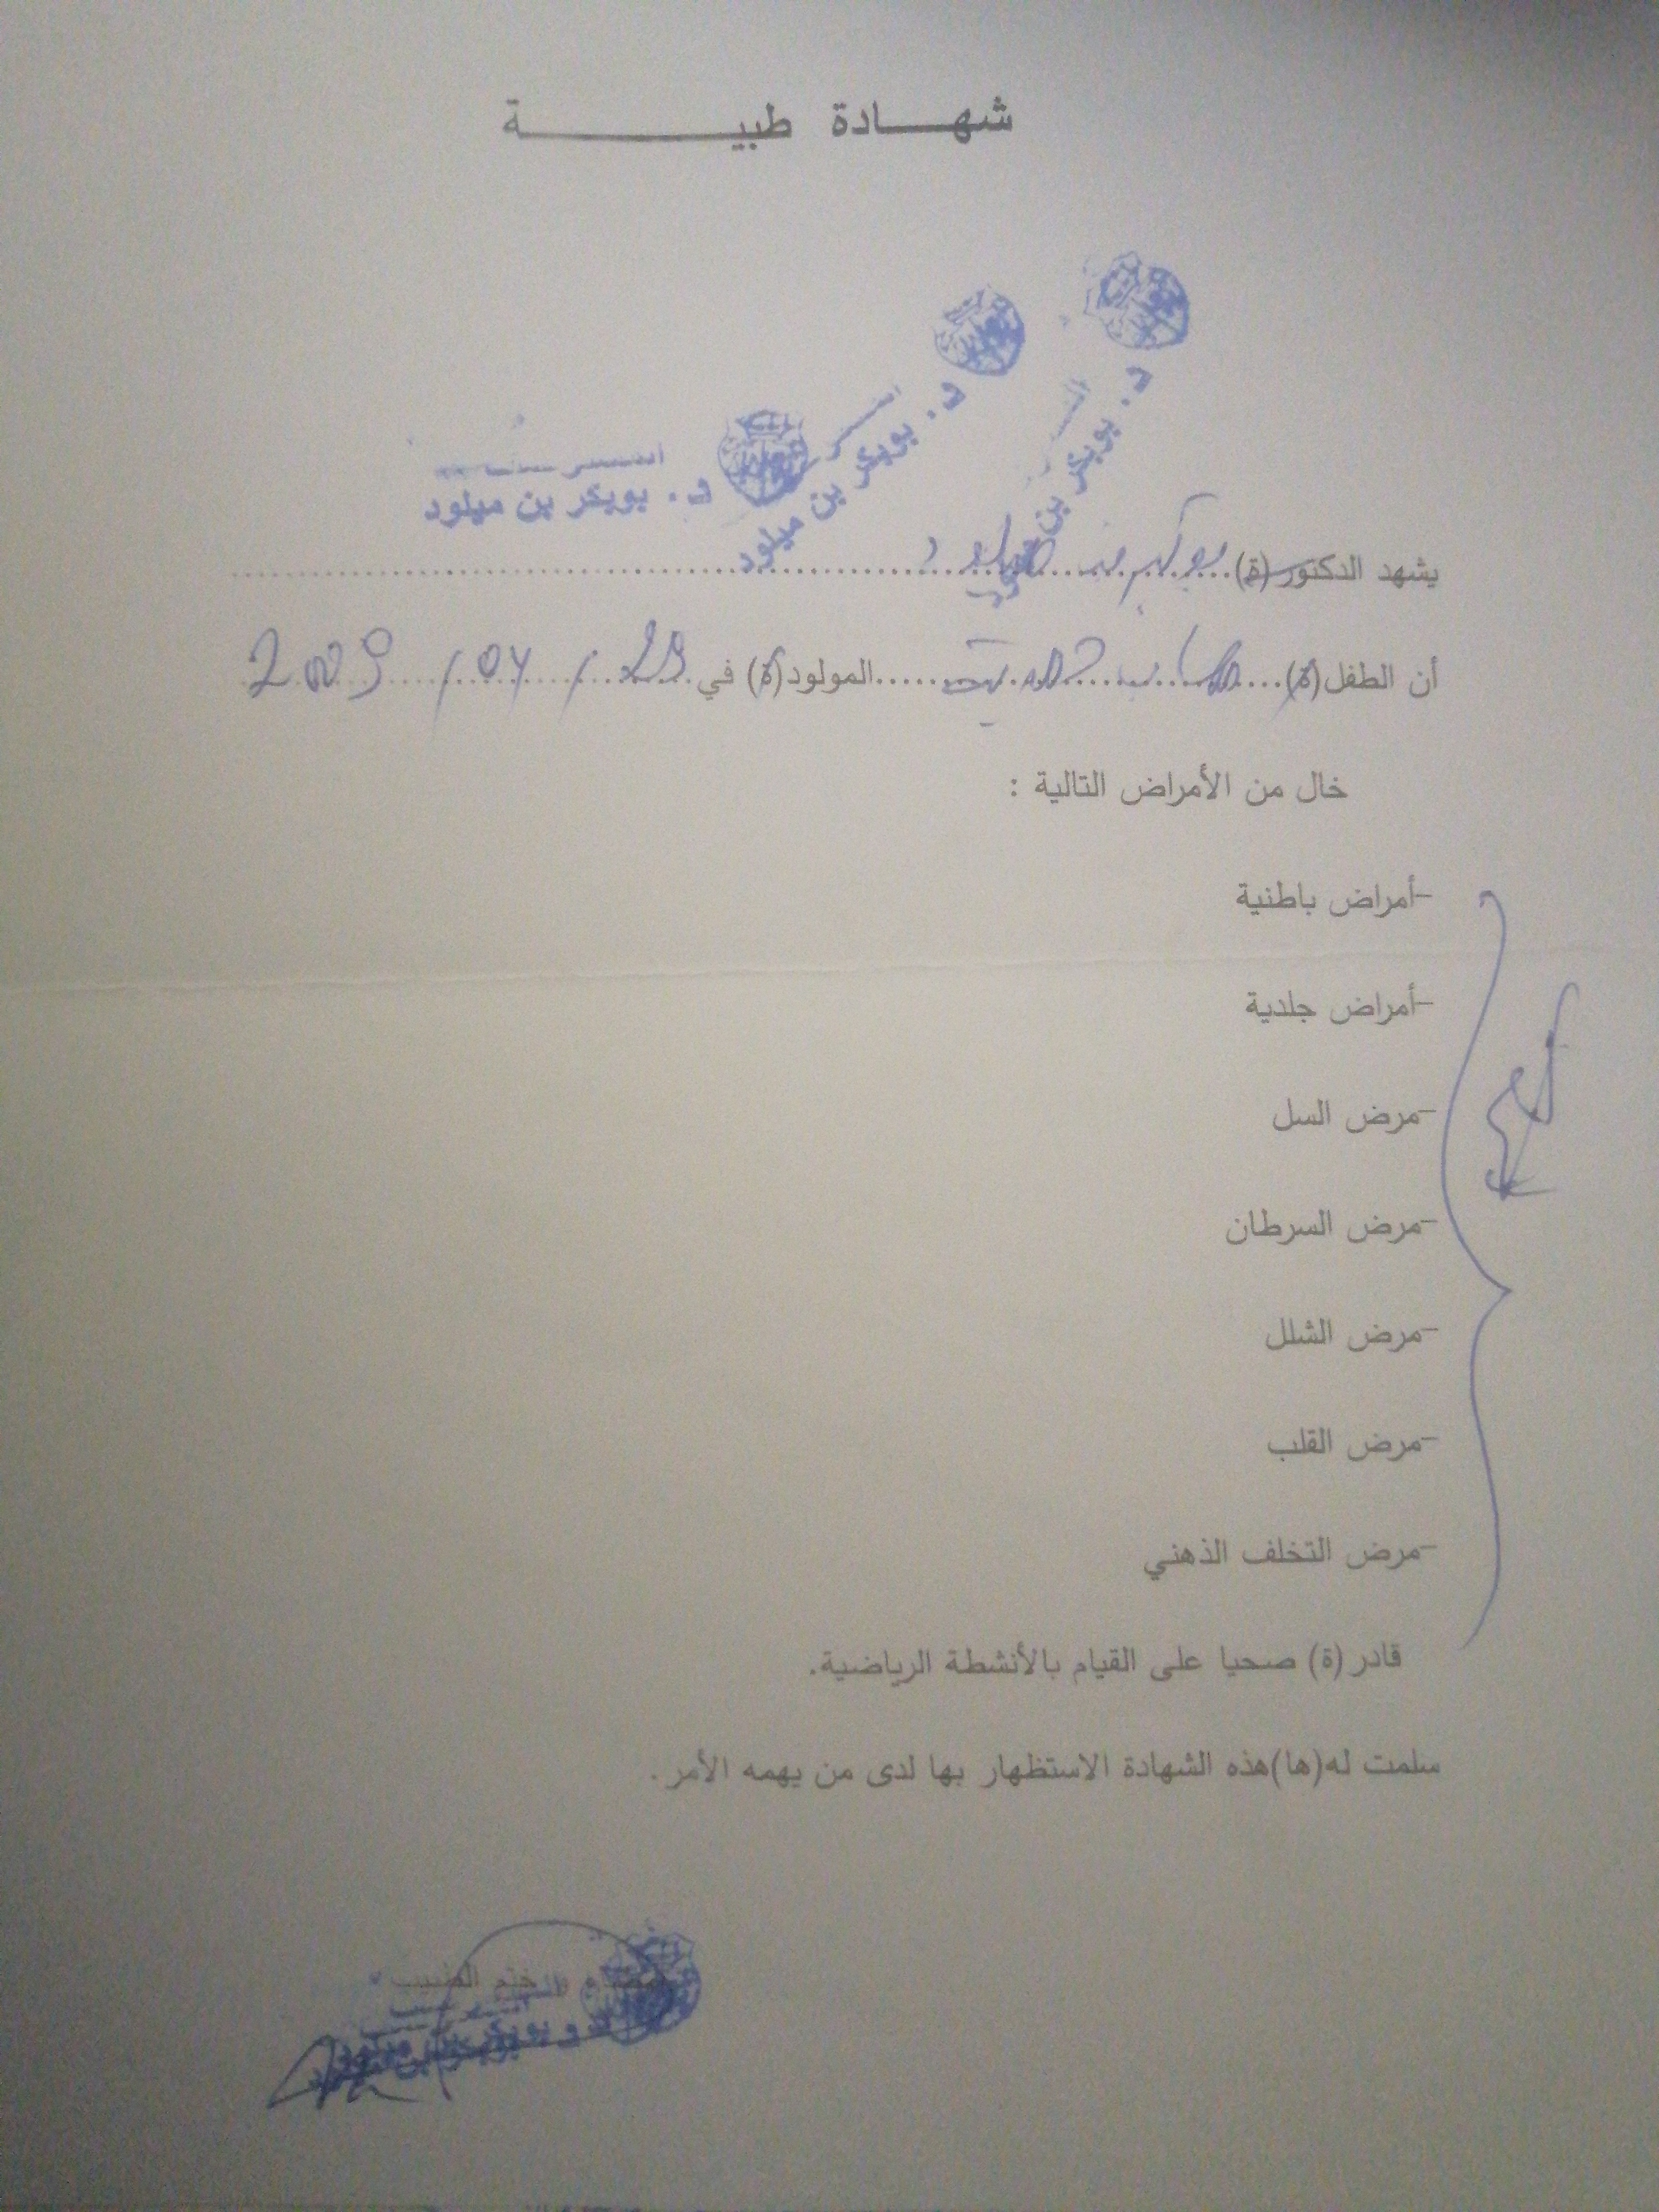 شهادة طبية
د. بوبكر بن ميلود
د. بوبكر بن ميلود
د. بوبكر بن ميلود
يشهد الدكتور(ة) بوبكر بن ميلود
أن الطفل(ة) المولود(ة) في 29 / 04 / 2009
خال من الأمراض التالية :
-أمراض باطنية
-أمراض جلدية
-مرض السل
-مرض السرطان
-مرض الشلل
-مرض القلب
-مرض التخلف الذهني
قادر(ة) صحيا على القيام بالأنشطة الرياضية.
سلمت له(ها)هذه الشهادة الاستظهار بها لدى من يهمه الأمر.
ختم الطبيب
بوبكر بن ميلود